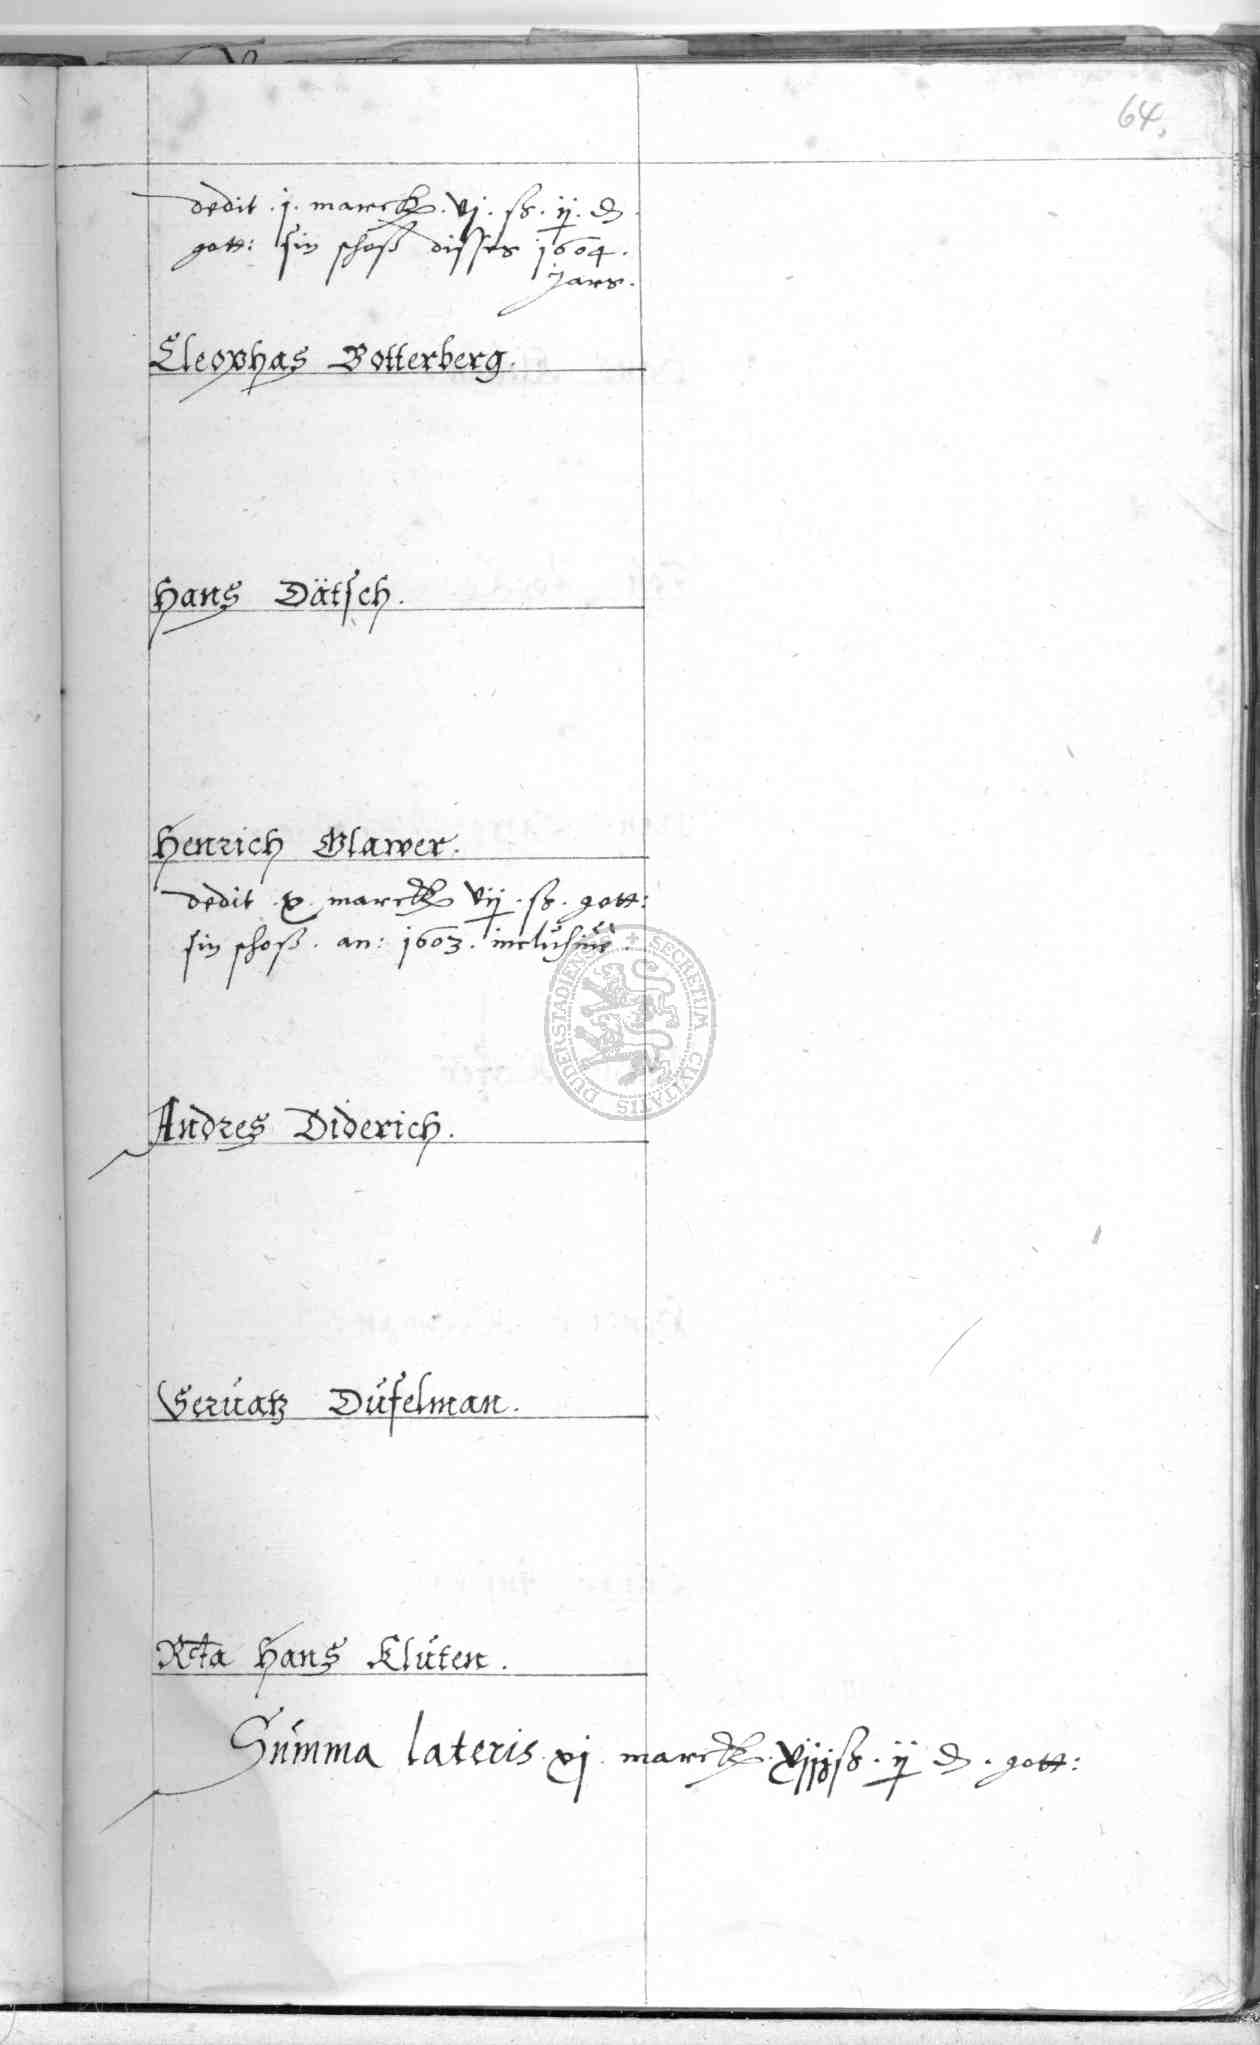 64.
dedit . j . marck . vj . ß . ij . ₰
gott: sin schoß disses 1604 .
jars .
Cleophas Botterberg .
Hans Dätsch .
Henrich Glawer .
dedit . x . marck vij . ß . gott:
sin schoß . an: 1603 . inclusiue .
SECRETUM CIVITATIS DUDERSTADIENSIS
Andres Diderich .
Seruatz Düfelman .
Rcta Hans Kluten .
Summa lateris . xj . marck . xiijß . ij ₰ . gott: